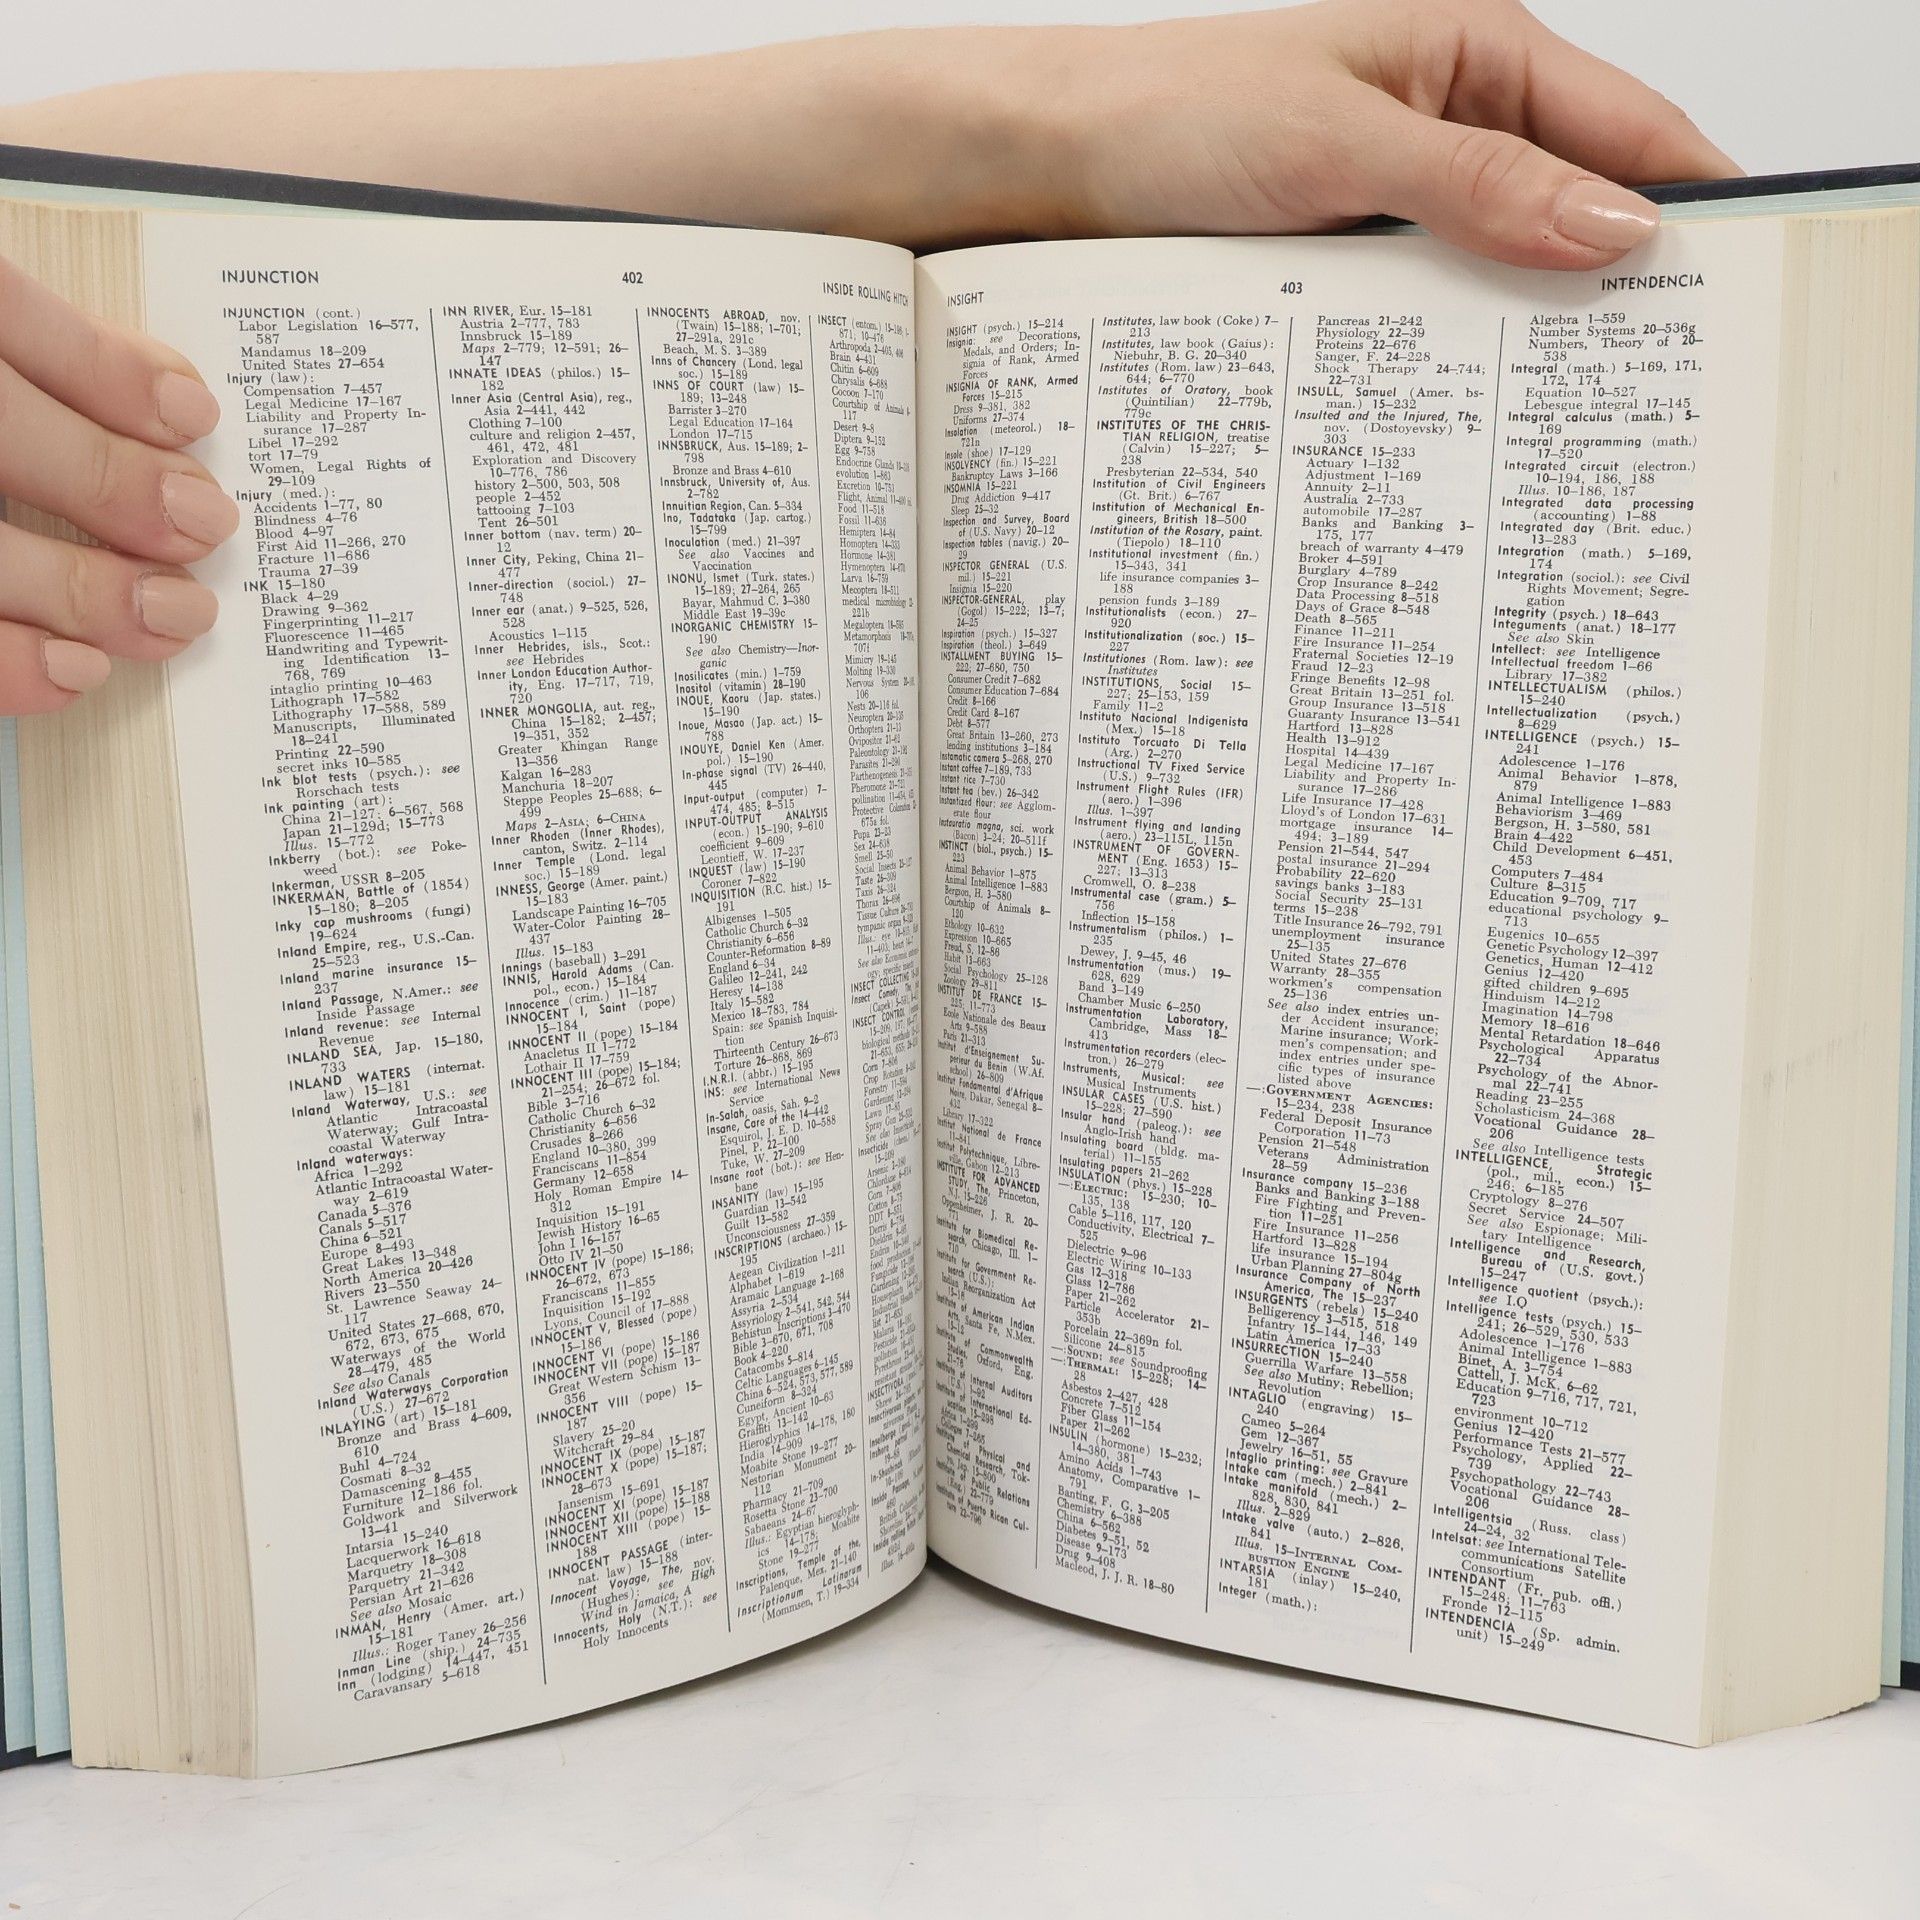 INJUNCTION
402
INSIDE ROLLING HITCH
INJUNCTION (cont.)
Labor Legislation 16–577,
587
Mandamus 18–209
United States 27–654
Injury (law):
Compensation 7–457
Legal Medicine 17–167
Liability and Property In-
surance 17–287
Libel 17–292
tort 17–79
Women, Legal Rights of
29–109
Injury (med.):
Accidents 1–77, 80
Blindness 4–76
Blood 4–97
First Aid 11–266, 270
Fracture 11–686
Trauma 27–39
INK 15–180
Black 4–29
Drawing 9–362
Fingerprinting 11–217
Fluorescence 11–465
Handwriting and Typewrit-
ing Identification 13–
768, 769
intaglio printing 10–463
Lithograph 17–582
Lithography 17–588, 589
Manuscripts, Illuminated
18–241
Printing 22–590
secret inks 10–585
Ink blot tests (psych.): see
Rorschach tests
Ink painting (art):
China 21–127; 6–567, 568
Japan 21–129d; 15–773
Illus. 15–772
Inkberry (bot.): see Poke-
weed
Inkerman, USSR 8–205
INKERMAN, Battle of (1854)
15–180; 8–205
Inky cap mushrooms (fungi)
19–624
Inland Empire, reg., U.S.-Can.
25–523
Inland marine insurance 15–
237
Inland Passage, N.Amer.: see
Inside Passage
Inland revenue: see Internal
Revenue
INLAND SEA, Jap. 15–180,
733
INLAND WATERS (internat.
law) 15–181
Inland Waterway, U.S.: see
Atlantic Intracoastal
Waterway; Gulf Intra-
coastal Waterway
Inland waterways:
Africa 1–292
Atlantic Intracoastal Water-
way 2–619
Canada 5–376
Canals 5–517
China 6–521
Europe 8–493
Great Lakes 13–348
North America 20–426
Rivers 23–550
St. Lawrence Seaway 24–
117
United States 27–668, 670,
672, 673, 675
Waterways of the World
28–479, 485
See also Canals
Inland Waterways Corporation
(U.S.) 27–672
INLAYING (art) 15–181
Bronze and Brass 4–609,
610
Buhl 4–724
Cosmati 8–32
Damascening 8–455
Furniture 12–186 fol.
Goldwork and Silverwork
13–41
Intarsia 15–240
Lacquerwork 16–618
Marquetry 18–308
Parquetry 21–342
Persian Art 21–626
See also Mosaic
INMAN, Henry (Amer. art.)
15–181
Illus.: Roger Taney 26–256
Inman Line (ship.) 24–735
Inn (lodging) 14–447, 451
Caravansary 5–618
INN RIVER, Eur. 15–181
Austria 2–777, 783
Innsbruck 15–189
Maps 2–779; 12–591; 26–
147
INNATE IDEAS (philos.) 15–
182
Inner Asia (Central Asia), reg.,
Asia 2–441, 442
Clothing 7–100
culture and religion 2–457,
461, 472, 481
Exploration and Discovery
10–776, 786
history 2–500, 503, 508
people 2–452
tattooing 7–103
Tent 26–501
Inner bottom (nav. term) 20–
12
Inner City, Peking, China 21–
477
Inner-direction (sociol.) 27–
748
Inner ear (anat.) 9–525, 526,
528
Acoustics 1–115
Inner Hebrides, isls., Scot.:
see Hebrides
Inner London Education Author-
ity, Eng. 17–717, 719,
720
INNER MONGOLIA, aut. reg.,
China 15–182; 2–457;
19–351, 352
Greater Khingan Range
13–356
Kalgan 16–283
Manchuria 18–207
Steppe Peoples 25–688; 6–
499
Maps 2–ASIA; 6–CHINA
Inner Rhoden (Inner Rhodes),
canton, Switz. 2–114
Inner Temple (Lond. legal
soc.) 15–189
INNESS, George (Amer. paint.)
15–183
Landscape Painting 16–705
Water-Color Painting 28–
437
Illus. 15–183
Innings (baseball) 3–291
INNIS, Harold Adams (Can.
pol., econ.) 15–184
Innocence (crim.) 11–187
INNOCENT I, Saint (pope)
15–184
INNOCENT II (pope) 15–184
Anacletus II 1–772
Lothair II 17–759
INNOCENT III (pope) 15–184;
21–254; 26–672 fol.
Bible 3–716
Catholic Church 6–32
Christianity 6–656
Crusades 8–266
England 10–380, 399
Franciscans 11–854
Germany 12–658
Holy Roman Empire 14–
312
Inquisition 15–191
Jewish History 16–65
John I 16–157
Otto IV 21–50
INNOCENT IV (pope) 15–186;
26–672, 673
Franciscans 11–855
Inquisition 15–192
Lyons, Council of 17–888
INNOCENT V, Blessed (pope)
15–186
INNOCENT VI (pope) 15–186
INNOCENT VII (pope) 15–187
Great Western Schism 13–
356
INNOCENT VIII (pope) 15–
187
Slavery 25–20
Witchcraft 29–84
INNOCENT IX (pope) 15–187
INNOCENT X (pope) 15–187;
28–673
Jansenism 15–691
INNOCENT XI (pope) 15–187
INNOCENT XII (pope) 15–188
INNOCENT XIII (pope) 15–
188
INNOCENT PASSAGE (inter-
nat. law) 15–188
Innocent Voyage, The, nov.
(Hughes): see High
Wind in Jamaica, A
Innocents, Holy (N.T.): see
Holy Innocents
INNOCENTS ABROAD, nov.
(Twain) 15–188; 1–701;
27–291a, 291c
Beach, M. S. 3–389
Inns of Chancery (Lond. legal
soc.) 15–189
INNS OF COURT (law) 15–
189; 13–248
Barrister 3–270
Legal Education 17–164
London 17–715
INNSBRUCK, Aus. 15–189; 2–
798
Bronze and Brass 4–610
Innsbruck, University of, Aus.
2–782
Innuitian Region, Can. 5–334
Ino, Tadataka (Jap. cartog.)
15–799
Inoculation (med.) 21–397
See also Vaccines and
Vaccination
INONU, Ismet (Turk. states.)
15–189; 27–264, 265
Bayar, Mahmud C. 3–380
Middle East 19–39c
INORGANIC CHEMISTRY 15–
190
See also Chemistry—Inor-
ganic
Inosilicates (min.) 1–759
Inositol (vitamin) 28–190
INOUE, Kaoru (Jap. states.)
15–190
Inoue, Masao (Jap. act.) 15–
788
INOUYE, Daniel Ken (Amer.
pol.) 15–190
In-phase signal (TV) 26–440,
445
Input-output (computer) 7–
474, 485; 8–515
INPUT-OUTPUT ANALYSIS
(econ.) 15–190; 9–610
coefficient 9–609
Leontieff, W. 17–237
INQUEST (law) 15–190
Coroner 7–822
INQUISITION (R.C. hist.) 15–
191
Albigenses 1–505
Catholic Church 6–32
Christianity 6–656
Counter-Reformation 8–89
England 6–34
Galileo 12–241, 242
Heresy 14–138
Italy 15–582
Mexico 18–783, 784
Spain: see Spanish Inquisi-
tion
Thirteenth Century 26–673
Torture 26–868, 869
I.N.R.I. (abbr.) 15–195
INS: see International News
Service
In-Salah, oasis, Sah. 9–2
Insane, Care of the 14–442
Esquirol, J. E. D. 10–588
Pinel, P. 22–100
Tuke, W. 27–209
Insane root (bot.): see Hen-
bane
INSANITY (law) 15–195
Guardian 13–542
Guilt 13–582
Unconsciousness 27–359
INSCRIPTIONS (archaeo.) 15–
195
Aegean Civilization 1–211
Alphabet 1–619
Aramaic Language 2–168
Assyria 2–534
Assyriology 2–541, 542, 544
Behistun Inscriptions 3–470
Bible 3–670, 671, 708
Book 4–220
Catacombs 5–814
Celtic Languages 6–145
China 6–524, 573, 577, 589
Cuneiform 8–324
Egypt, Ancient 10–63
Graffiti 13–142
Hieroglyphics 14–178, 180
India 14–909
Moabite Stone 19–277
Nestorian Monument 20–
112
Pharmacy 21–709
Rosetta Stone 23–700
Sabaeans 24–67
Illus.: Egyptian hieroglyph-
ics 14–178; Moabite
Stone 19–277
Inscriptions, Temple of the,
Palenque, Mex. 21–140
Inscriptionum Latinarum
(Mommsen, T.) 19–334
INSECT (entom.)
Arthropoda
Brain 4–431
Chitin 6–609
Chrysalis 6–688
Cocoon 7–170
Courtship of Animals
117
Desert 9–8
Diptera 9–152
Egg 9–758
Endocrine Glands
evolution
Excretion 10–753
Flight, Animal
Food 11–518
Fossil 11–636
Hemiptera 14–84
Homoptera 14–333
Hormone 14–381
Hymenoptera
Larva 16–759
Mecoptera 18–511
medical microbiology
221b
Megaloptera 18–585
Metamorphosis
707f
Mimicry 19–145
Molting 19–330
Nervous System
106
Nests 20–116 fol.
Neuroptera 20–135
Orthoptera 21–13
Ovipositor
Paleontology
Parasites
Parthenogenesis
Pheromone
pollination
Protective Coloration
675a fol.
Pupa 23–23
Sex 24–638
Smell 25–50
Social Insects
Taste 26–309
Taxis 26–324
Thorax 26–696
Tissue Culture
INSECT COLLECTING
INSECT CONTROL
INSECTIVORA
INSIGHT
403
INTENDENCIA
INSIGHT (psych.) 15–214
Insignia: see Decorations,
Medals, and Orders; In-
signia of Rank, Armed
Forces
INSIGNIA OF RANK, Armed
Forces 15–215
Dress 9–381, 382
Uniforms 27–374
Insolation (meteorol.) 18–
721n
Insole (shoe) 17–129
INSOLVENCY (fin.) 15–221
Bankruptcy Laws 3–166
INSOMNIA 15–221
Drug Addiction 9–417
Sleep 25–32
Inspection and Survey, Board
of (U.S. Navy) 20–12
Inspection tables (navig.) 20–
29
INSPECTOR GENERAL (U.S.
mil.) 15–221
Insignia 15–220
INSPECTOR-GENERAL, play
(Gogol) 15–222; 13–7;
24–25
Inspiration (psych.) 15–327
Inspiration (theol.) 3–649
INSTALLMENT BUYING 15–
222; 27–680, 750
Consumer Credit 7–682
Consumer Education 7–684
Credit 8–166
Credit Card 8–167
Debt 8–577
Great Britain 13–260, 273
lending institutions 3–184
Instamatic camera 5–268, 270
Instant coffee 7–189, 733
Instant rice 7–730
Instant tea (bev.) 26–342
Instantized flour: see Agglom-
erate flour
Instauratio magna, sci. work
(Bacon) 3–24; 20–511f
INSTINCT (biol., psych.) 15–
223
Animal Behavior 1–875
Animal Intelligence 1–883
Bergson, H. 3–580
Courtship of Animals 8–
120
Ethology 10–632
Expression 10–665
Freud, S. 12–86
Habit 13–663
Social Psychology 25–128
Zoology 29–811
INSTITUT DE FRANCE 15–
225; 11–773
Ecole Nationale des Beaux
Arts 9–588
Paris 21–313
Institut d'Enseignement Su-
périeur du Benin (W.Af.
school) 26–809
Institut Fondamental d'Afrique
Noire, Dakar, Senegal 8–
432
Library 17–322
Institut National de France
11–841
Institut Polytechnique, Libre-
ville, Gabon 12–213
INSTITUTE FOR ADVANCED
STUDY, The, Princeton,
N.J. 15–226
Oppenheimer, J. R. 20–
771
Institute for Biomedical Re-
search, Chicago, Ill. 1–
710
Institute for Government Re-
search (U.S.):
Indian Reorganization Act
15–18
Institute of American Indian
Arts, Santa Fe, N.Mex.
15–12
Institute of Commonwealth
Studies, Oxford, Eng.
21–76
Institute of Internal Auditors
(U.S.) 1–92
Institute of International Ed-
ucation 15–298
Institute of Physical and
Chemical Research, Tok-
yo, Jap. 15–800
Institute of Public Relations
(Eng.) 22–779
Institute of Puerto Rican Cul-
ture 22–796
Institutes, law book (Coke) 7–
213
Institutes, law book (Gaius):
Niebuhr, B. G. 20–340
Institutes (Rom. law) 23–643,
644; 6–770
Institutes of Oratory, book
(Quintilian) 22–779b,
779c
INSTITUTES OF THE CHRIS-
TIAN RELIGION, treatise
(Calvin) 15–227; 5–
238
Presbyterian 22–534, 540
Institution of Civil Engineers
(Gt. Brit.) 6–767
Institution of Mechanical En-
gineers, British 18–500
Institution of the Rosary, paint.
(Tiepolo) 18–110
Institutional investment (fin.)
15–343, 341
life insurance companies 3–
188
pension funds 3–189
Institutionalists (econ.) 27–
920
Institutionalization (soc.) 15–
227
Institutiones (Rom. law): see
Institutes
INSTITUTIONS, Social 15–
227; 25–153, 159
Family 11–2
Instituto Nacional Indigenista
(Mex.) 15–18
Instituto Torcuato Di Tella
(Arg.) 2–270
Instructional TV Fixed Service
(U.S.) 9–732
Instrument Flight Rules (IFR)
(aero.) 1–396
Illus. 1–397
Instrument flying and landing
(aero.) 23–115L, 115n
INSTRUMENT OF GOVERN-
MENT (Eng. 1653) 15–
227; 13–313
Cromwell, O. 8–238
Instrumental case (gram.) 5–
756
Inflection 15–158
Instrumentalism (philos.) 1–
235
Dewey, J. 9–45, 46
Instrumentation (mus.) 19–
628, 629
Band 3–149
Chamber Music 6–250
Instrumentation Laboratory,
Cambridge, Mass 18–
413
Instrumentation recorders (elec-
tron.) 26–279
Instruments, Musical: see
Musical Instruments
INSULAR CASES (U.S. hist.)
15–228; 27–590
Insular hand (paleog.): see
Anglo-Irish hand
Insulating board (bldg. ma-
terial) 11–155
Insulating papers 21–262
INSULATION (phys.) 15–228
—:ELECTRIC: 15–230; 10–
135, 138
Cable 5–116, 117, 120
Conductivity, Electrical 7–
525
Dielectric 9–96
Electric Wiring 10–133
Gas 12–318
Glass 12–786
Paper 21–262
Particle Accelerator 21–
353b
Porcelain 22–369n fol.
Silicone 24–815
—:SOUND: see Soundproofing
—:THERMAL: 15–228; 14–
28
Asbestos 2–427, 428
Concrete 7–512
Fiber Glass 11–154
Paper 21–262
INSULIN (hormone) 15–232;
14–380, 381
Amino Acids 1–743
Anatomy, Comparative 1–
791
Banting, F. G. 3–205
Chemistry 6–388
China 6–562
Diabetes 9–51, 52
Disease 9–173
Drug 9–408
Macleod, J. J. R. 18–80
Pancreas 21–242
Physiology 22–39
Proteins 22–676
Sanger, F. 24–228
Shock Therapy 24–744;
22–731
INSULL, Samuel (Amer. bs-
man.) 15–232
Insulted and the Injured, The,
nov. (Dostoyevsky) 9–
303
INSURANCE 15–233
Actuary 1–132
Adjustment 1–169
Annuity 2–11
Australia 2–733
automobile 17–287
Banks and Banking 3–
175, 177
breach of warranty 4–479
Broker 4–591
Burglary 4–789
Crop Insurance 8–242
Data Processing 8–518
Days of Grace 8–548
Death 8–565
Finance 11–211
Fire Insurance 11–254
Fraternal Societies 12–19
Fraud 12–23
Fringe Benefits 12–98
Great Britain 13–251 fol.
Group Insurance 13–518
Guaranty Insurance 13–541
Hartford 13–828
Health 13–912
Hospital 14–439
Legal Medicine 17–167
Liability and Property In-
surance 17–286
Life Insurance 17–428
Lloyd's of London 17–631
mortgage insurance 14–
494; 3–189
Pension 21–544, 547
postal insurance 21–294
Probability 22–620
savings banks 3–183
Social Security 25–131
terms 15–238
Title Insurance 26–792, 791
unemployment insurance
25–135
United States 27–676
Warranty 28–355
workmen's compensation
25–136
See also index entries un-
der Accident insurance;
Marine insurance; Work-
men's compensation; and
index entries under spe-
cific types of insurance
listed above
—:GOVERNMENT AGENCIES:
15–234, 238
Federal Deposit Insurance
Corporation 11–73
Pension 21–548
Veterans Administration
28–59
Insurance company 15–236
Banks and Banking 3–188
Fire Fighting and Preven-
tion 11–251
Fire Insurance 11–256
Hartford 13–828
life insurance 15–194
Urban Planning 27–804g
Insurance Company of North
America, The 15–237
INSURGENTS (rebels) 15–240
Belligerency 3–515, 518
Infantry 15–144, 146, 149
Latin America 17–33
INSURRECTION 15–240
Guerrilla Warfare 13–558
See also Mutiny; Rebellion;
Revolution
INTAGLIO (engraving) 15–
240
Cameo 5–264
Gem 12–367
Jewelry 16–51, 55
Intaglio printing: see Gravure
Intake cam (mech.) 2–841
Intake manifold (mech.) 2–
828, 830, 841
Illus. 2–829
Intake valve (auto.) 2–826,
841
Illus. 15–INTERNAL COM-
BUSTION ENGINE
INTARSIA (inlay) 15–240,
181
Integer (math.):
Algebra 1–559
Number Systems 20–536g
Numbers, Theory of 20–
538
Integral (math.) 5–169, 171,
172, 174
Equation 10–527
Lebesgue integral 17–145
Integral calculus (math.) 5–
169
Integral programming (math.)
17–520
Integrated circuit (electron.)
10–194, 186, 188
Illus. 10–186, 187
Integrated data processing
(accounting) 1–88
Integrated day (Brit. educ.)
13–283
Integration (math.) 5–169,
174
Integration (sociol.): see Civil
Rights Movement; Segre-
gation
Integrity (psych.) 18–643
Integuments (anat.) 18–177
See also Skin
Intellect: see Intelligence
Intellectual freedom 1–66
Library 17–382
INTELLECTUALISM (philos.)
15–240
Intellectualization (psych.)
8–629
INTELLIGENCE (psych.) 15–
241
Adolescence 1–176
Animal Behavior 1–878,
879
Animal Intelligence 1–883
Behaviorism 3–469
Bergson, H. 3–580, 581
Brain 4–422
Child Development 6–451,
453
Computers 7–484
Culture 8–315
Education 9–709, 717
educational psychology 9–
713
Eugenics 10–655
Genetic Psychology 12–397
Genetics, Human 12–412
Genius 12–420
gifted children 9–695
Hinduism 14–212
Imagination 14–798
Memory 18–616
Mental Retardation 18–646
Psychological Apparatus
22–734
Psychology of the Abnor-
mal 22–741
Reading 23–255
Scholasticism 24–368
Vocational Guidance 28–
206
See also Intelligence tests
INTELLIGENCE, Strategic
(pol., mil., econ.) 15–
246; 6–185
Cryptology 8–276
Secret Service 24–507
See also Espionage; Mili-
tary Intelligence
Intelligence and Research,
Bureau of (U.S. govt.)
15–247
Intelligence quotient (psych.):
see I.Q
Intelligence tests (psych.) 15–
241; 26–529, 530, 533
Adolescence 1–176
Animal Intelligence 1–883
Binet, A. 3–754
Cattell, J. McK. 6–62
Education 9–716, 717, 721,
723
environment 10–712
Genius 12–420
Performance Tests 21–577
Psychology, Applied 22–
739
Psychopathology 22–743
Vocational Guidance 28–
206
Intelligentsia (Russ. class)
24–24, 32
Intelsat: see International Tele-
communications Satellite
Consortium
INTENDANT (Fr. pub. offi.)
15–248; 11–763
Fronde 12–115
INTENDENCIA (Sp. admin.
unit) 15–249